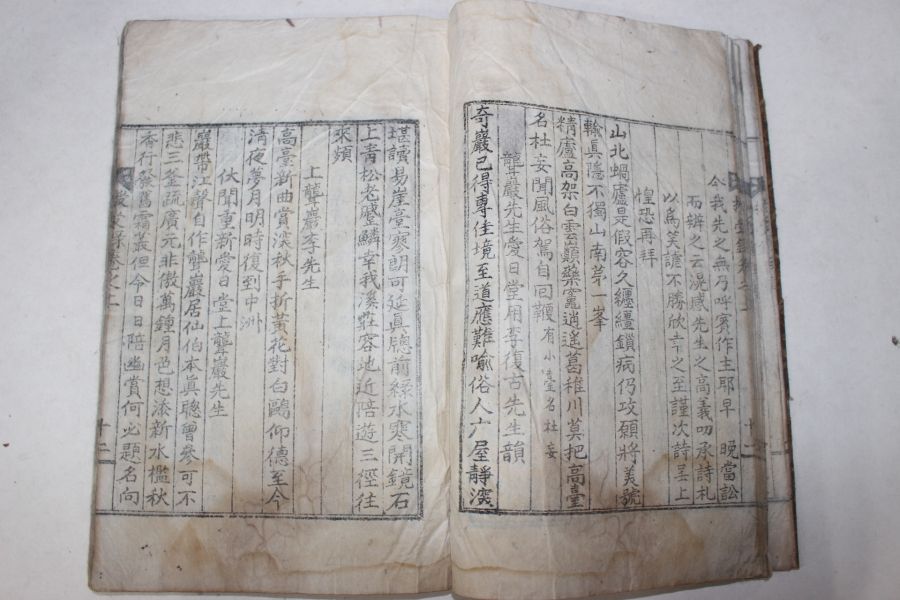 今我先之無乃呼賓作主耶早晚當訟
而辨之云滉感先生之高義叨承詩札
以爲笑謔不勝欣幸之至謹次詩呈上
惶恐再拜
山北蝸廬是假容久纏繮鎖病仍攻願將美號
輸眞隱不獨山南第一峯
精廬高架白雲顚藥竈逍遙葛稚川莫把高臺
名杜妄聞風俗駕自回鞭有小臺名杜妄
聾巖先生愛日堂用李復古先生韻
奇巖已得專佳境至道應難喻俗人六屋靜深
堪讀易崖臺寥朗可延眞聽前綠水寒開鏡石
上青松老蹙鱗幸我溪莊容地近陪遊三徑往
來頻
上聾巖李先生
高臺新曲賞深秋手折黃花對白鷗仰德至今
清夜夢月明時復到中洲
伏聞重新愛日堂上聾巖先生
巖帶江聲自作聾巖居仙伯本眞聰曾參可不
悲三釜疏廣元非傲萬鍾月色想添新水檻秋
香行發舊霜叢但今日日陪幽賞何必題名向
十二